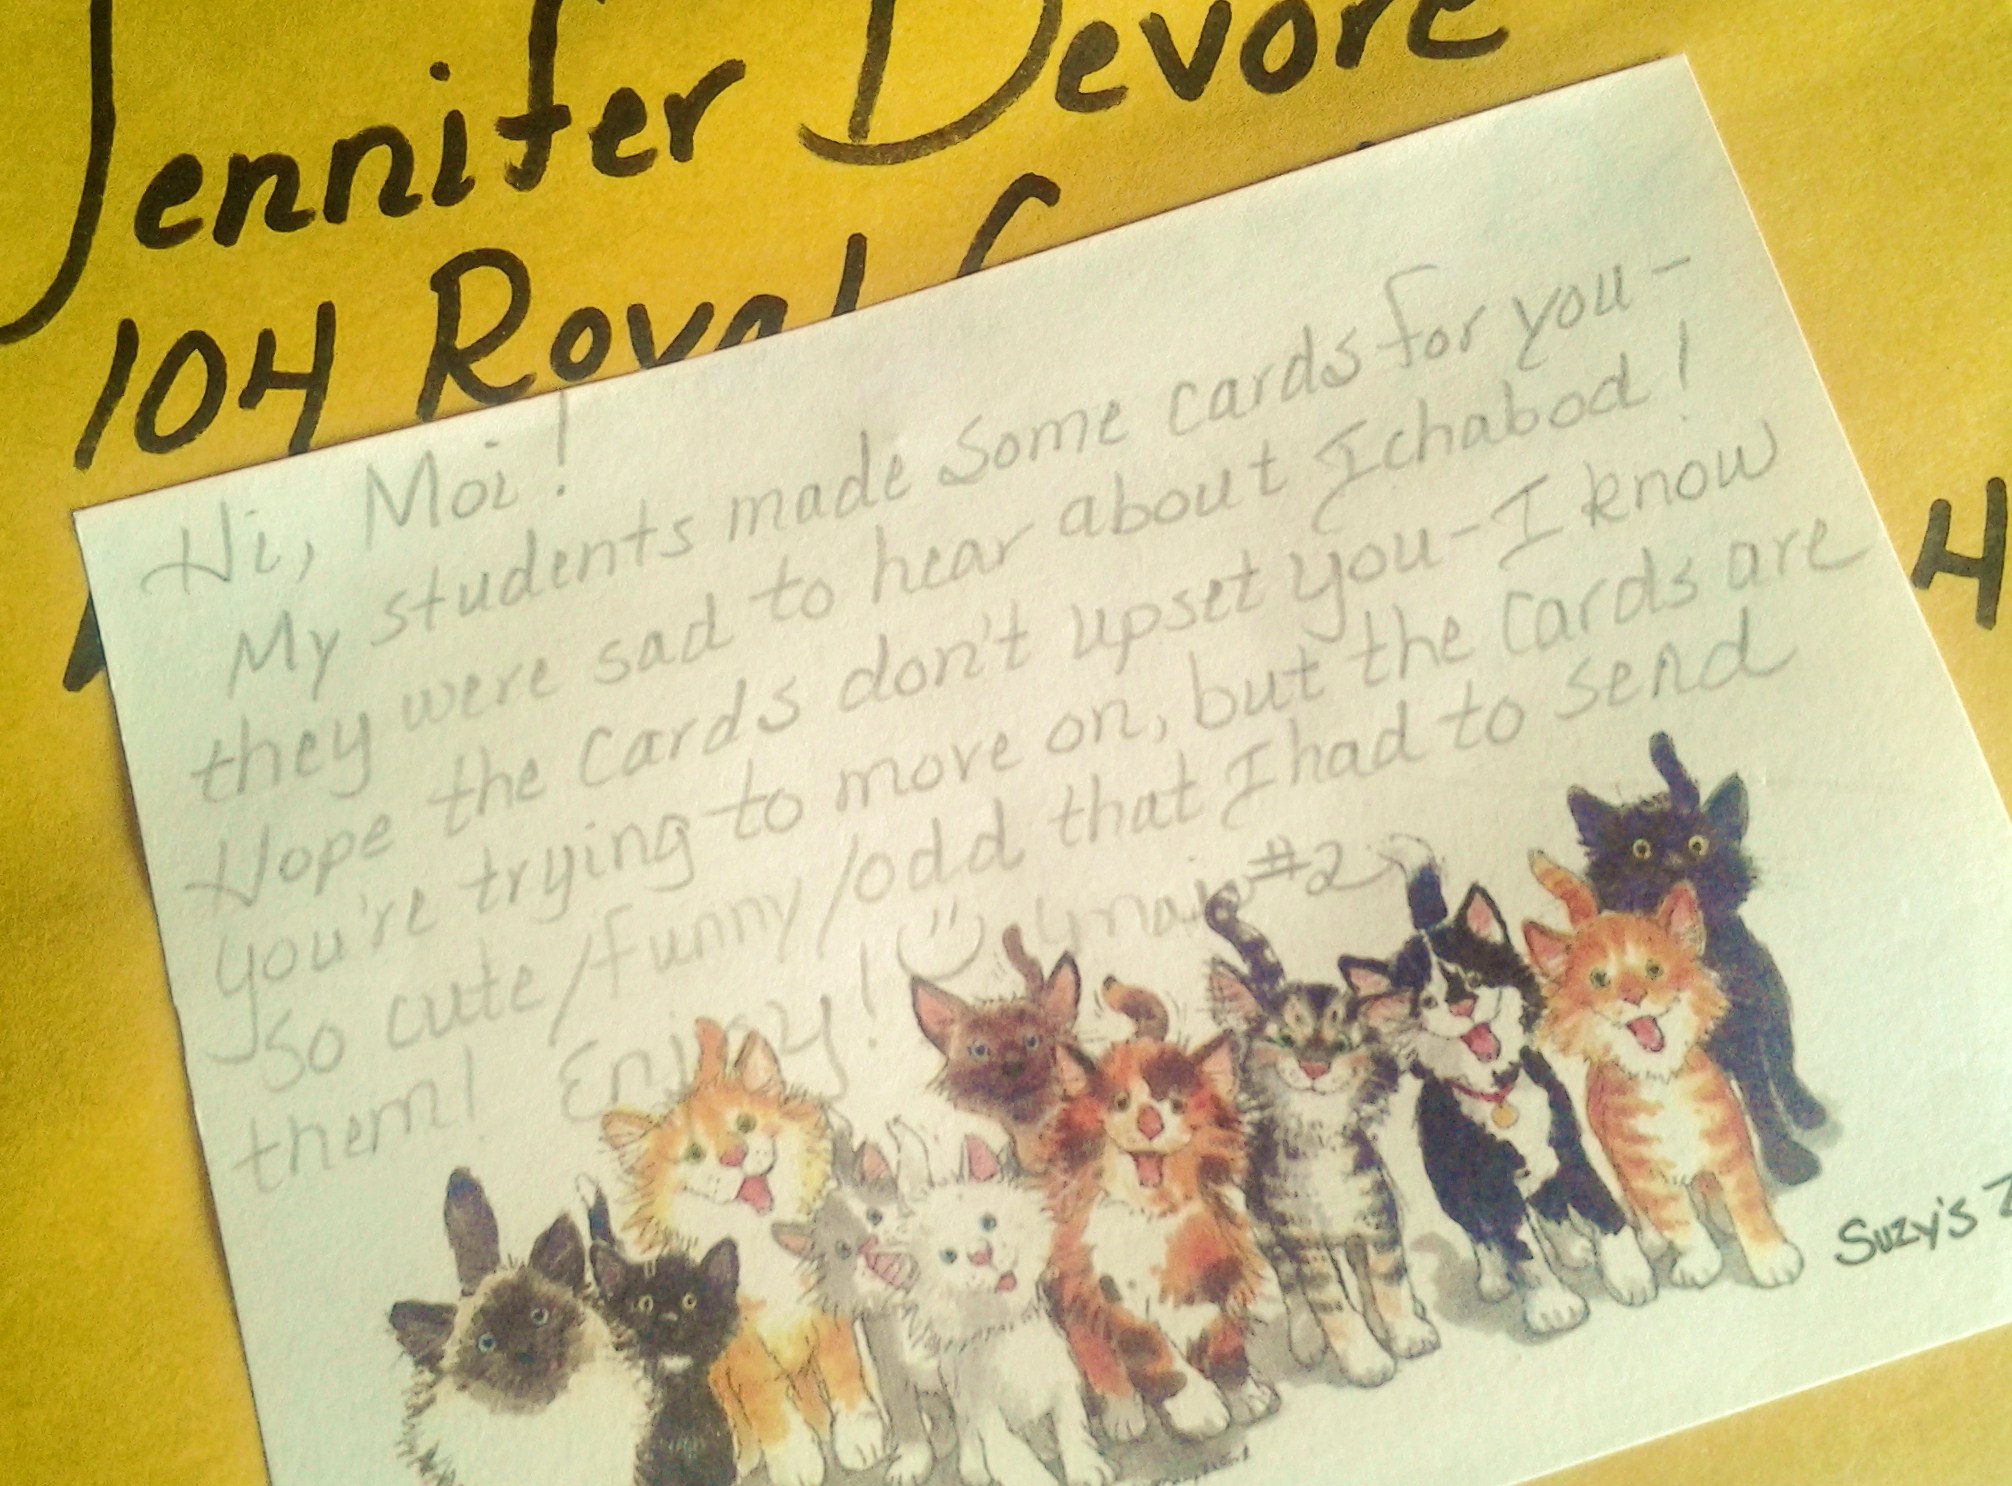 Jennifer Devore
104 Royal
Hi, Moi!
My students made some cards for you-
they were sad to hear about Ichabod!
Hope the cards don't upset you-I know
you're trying to move on, but the cards are
so cute/funny/odd that I had to send
them! Enjoy! #2
4
Suzy's Z